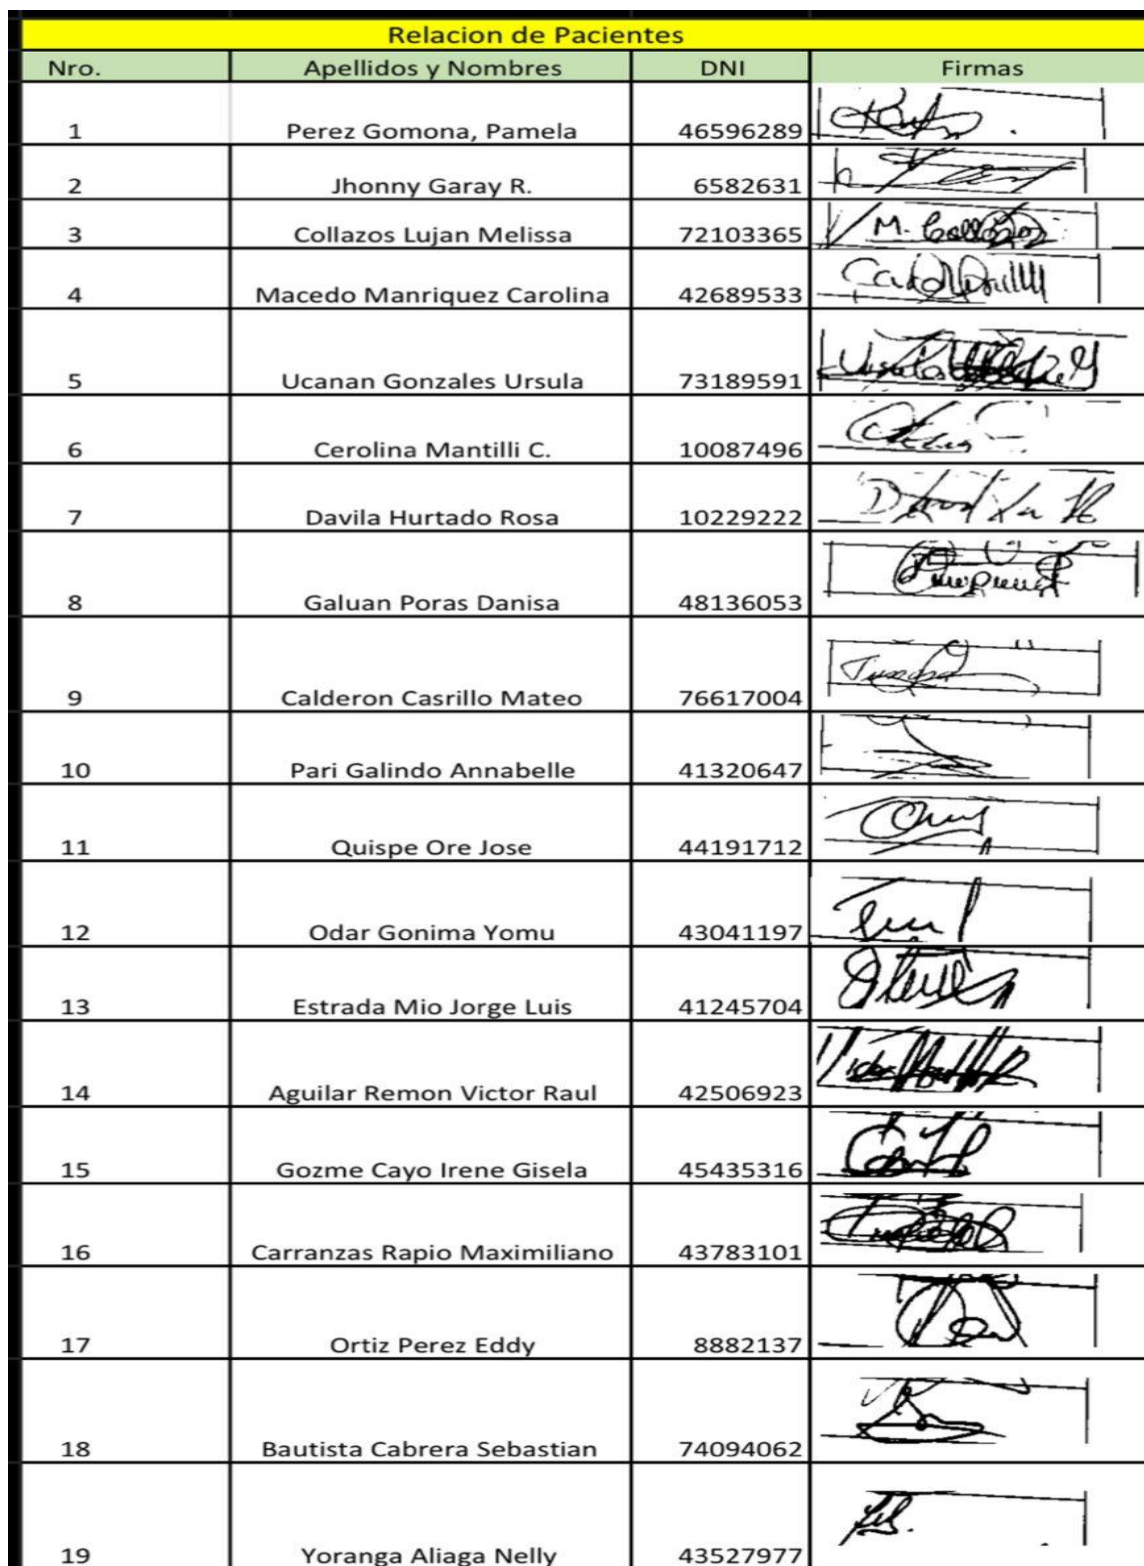 Relacion de Pacientes
Nro. Apellidos y Nombres DNI Firmas
1 Perez Gomona, Pamela 46596289
2 Jhonny Garay R. 6582631
3 Collazos Lujan Melissa 72103365 M. Collazos
4 Macedo Manriquez Carolina 42689533
5 Ucanan Gonzales Ursula 73189591
6 Cerolina Mantilli C. 10087496
7 Davila Hurtado Rosa 10229222
8 Galuan Poras Danisa 48136053
9 Calderon Casrillo Mateo 76617004
10 Pari Galindo Annabelle 41320647
11 Quispe Ore Jose 44191712
12 Odar Gonima Yomu 43041197
13 Estrada Mio Jorge Luis 41245704
14 Aguilar Remon Victor Raul 42506923
15 Gozme Cayo Irene Gisela 45435316
16 Carranzas Rapio Maximiliano 43783101
17 Ortiz Perez Eddy 8882137
18 Bautista Cabrera Sebastian 74094062
19 Yoranga Aliaga Nelly 43527977